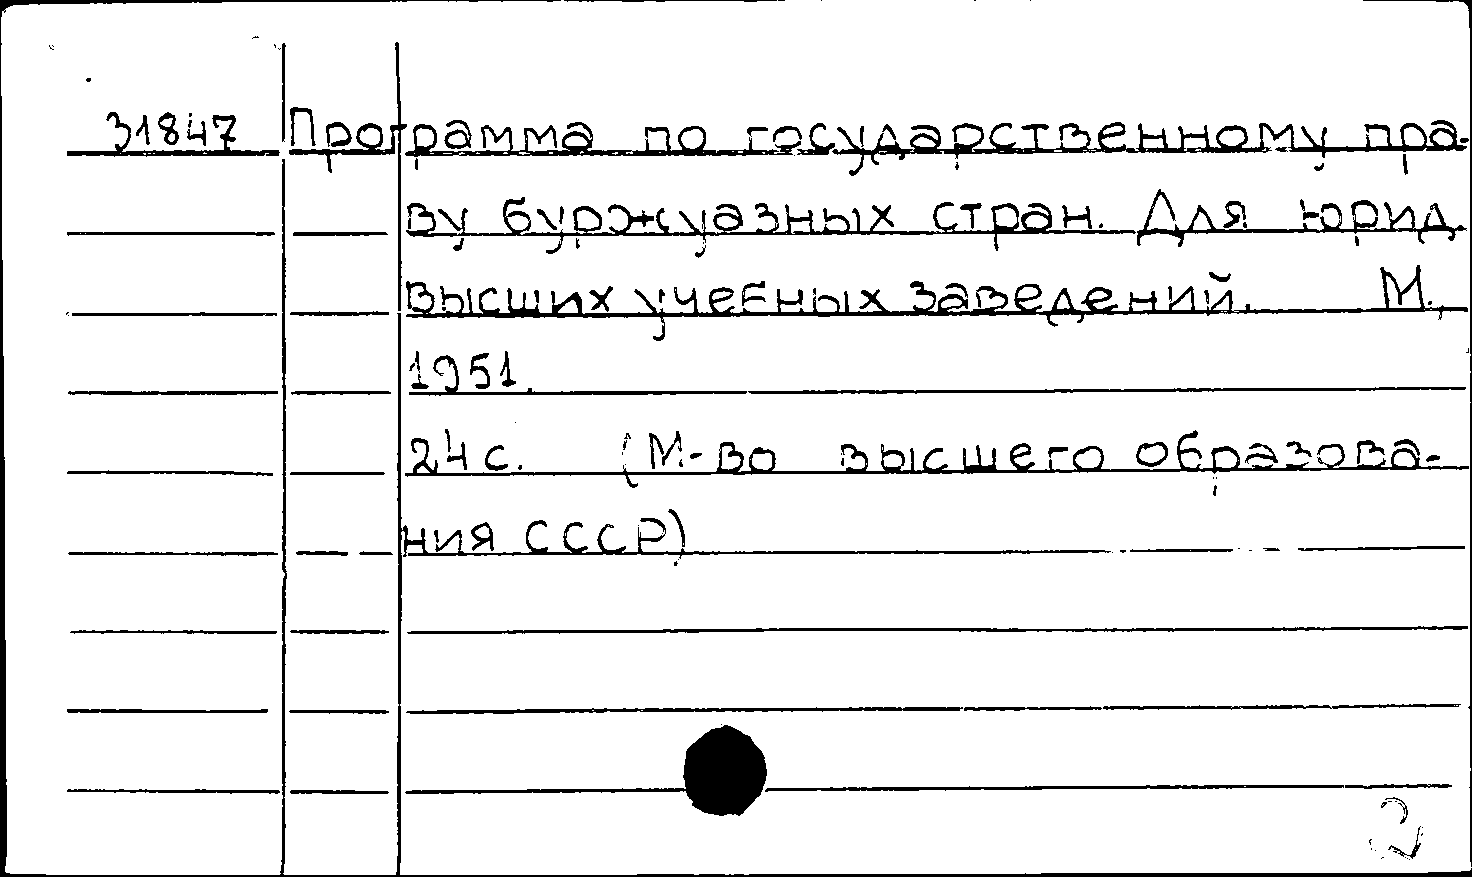 31847 Программа по государственному пра-
ву буржуазных стран. Для юрид.
высших учебных заведений. М.,
1951.
24 с. (М-во высшего образова-
ния СССР)
2